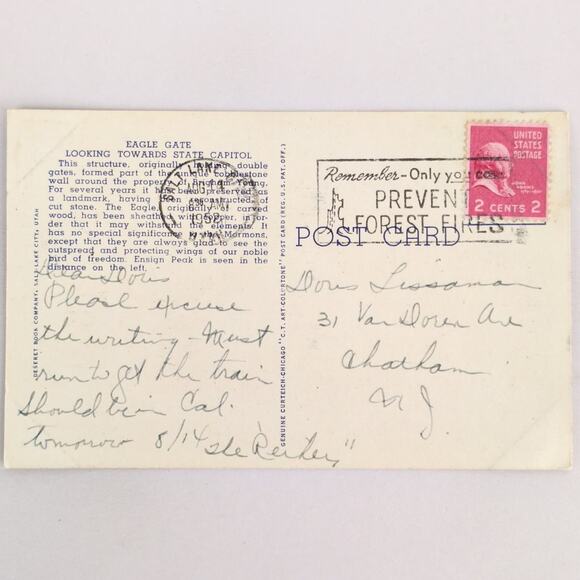 EAGLE GATE
LOOKING TOWARDS STATE CAPITOL
This structure, originally holding double
gates, formed part of the huge cobblestone
wall around the property of Brigham Young.
For several years it has been preserved as
a landmark, having been reconstructed of
cut stone. The Eagle, originally of carved
wood, has been sheathed with copper, in or-
der that it may withstand the elements. It
has no special significance to the Mormons,
except that they are always glad to see the
outspread and protecting wings of our noble
bird of freedom. Ensign Peak is seen in the
distance on the left.
Dear Doris
Please excuse
the writing - Must
run to get the train
Should be in Cal.
tomorrow 8/14
DESERET BOOK COMPANY, SALT LAKE CITY, UTAH
GENUINE CURTEICH-CHICAGO "C.T. ART-COLORTONE" POST CARD (REG. U.S. PAT. OFF.)
SALT LAKE
1952
Remember - Only you can
PREVENT
FOREST FIRES
UNITED
STATES
POSTAGE
2 CENTS 2
POST CARD
Doris Lissaman
31 Van Doren Ave
Chatham
N J.